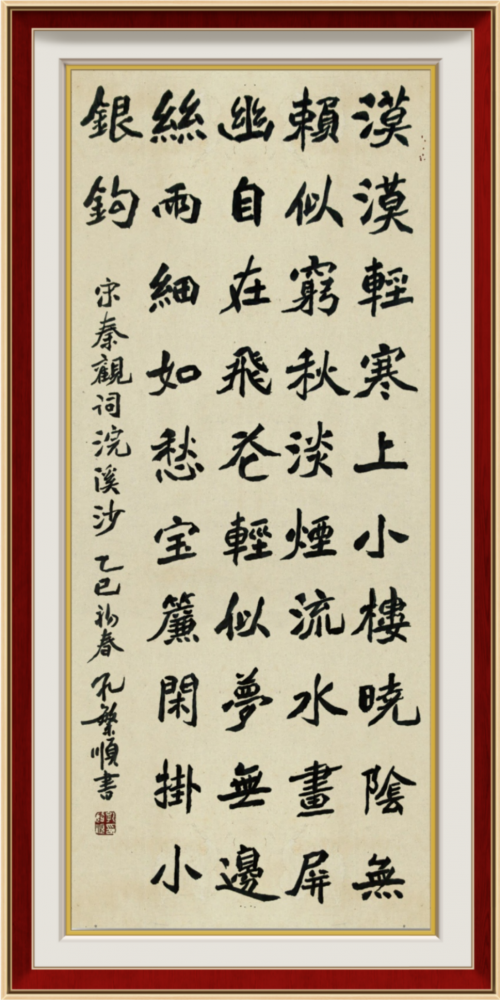 漠漠輕寒上小樓曉陰無
賴似窮秋淡煙流水畫屏
幽自在飛花輕似夢無邊
絲雨細如愁宝簾閑掛小
銀鉤
宋秦觀词浣溪沙乙巳初春孔繁順書